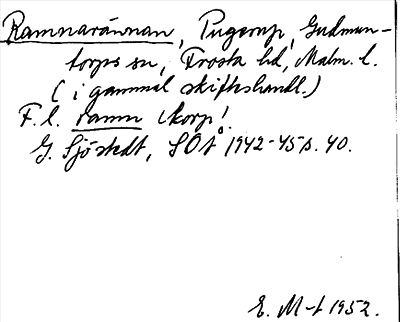 Ramnarännan, Pugerup, Gudmun-
torps sn, Frosta hd, Malm. l.
(i gammal skifteshandl.)
F. l. ramn 'korp'.
G. Sjöstedt, SOÅ 1942-45 s. 40.
E. M-t 1952.